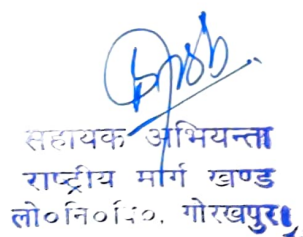 सहायक अभियन्ता
राष्ट्रीय मार्ग खण्ड
लो०नि०वि०, गोरखपुर।